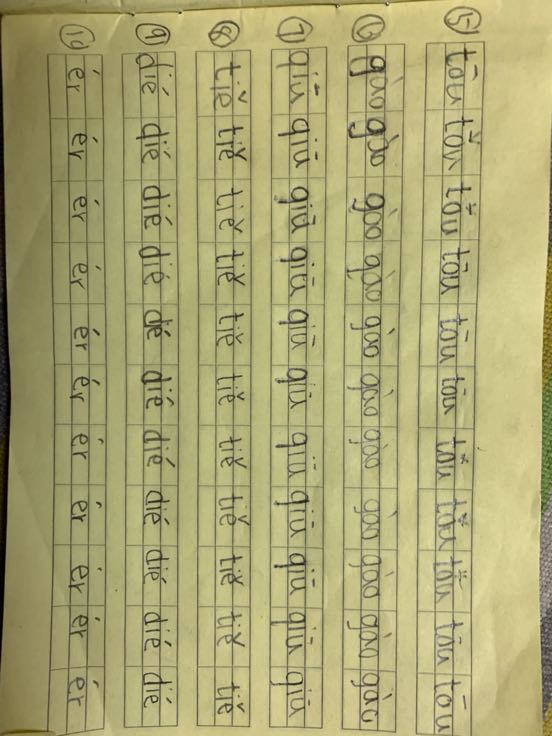 ⑤ tōu tǒu tǒu tōu tōu tōu tǒu tǒu tǒu tōu tōu
⑥ gào gào gào gào gào gào gào gào gào gào gào
⑦ qiū qiū qiū qiū qiū qiū qiū qiū qiū qiū qiū
⑧ tiě tiě tiě tiě tiě tiě tiě tiě tiě tiě tiě
⑨ dié dié dié dié dé dié dié dié dié dié dié
⑩ ér ér ér ér ér ér ér ér ér ér ér